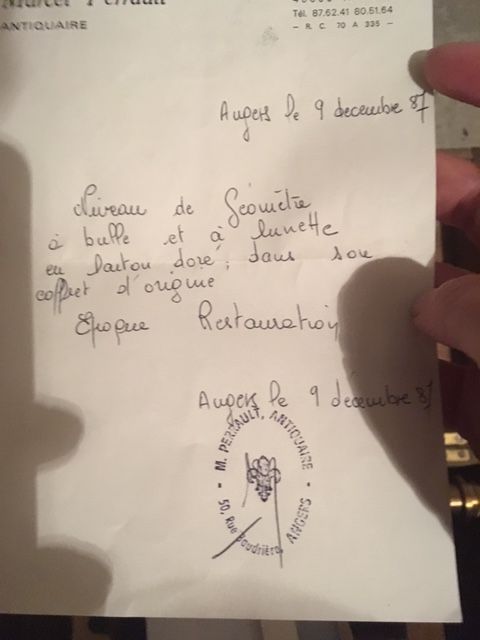 Marcel Perrault
ANTIQUAIRE
Tél. 87.62.41 80.51.64
— R. C. 70 A 335 —
Angers le 9 decembre 87
Niveau de Géomètre
à bulle et à lunette
en laiton doré, dans son
coffret d'origine
Epoque Restauration
Angers le 9 décembre 87
M. PERRAULT, ANTIQUAIRE
50, Rue Baudrière
ANGERS